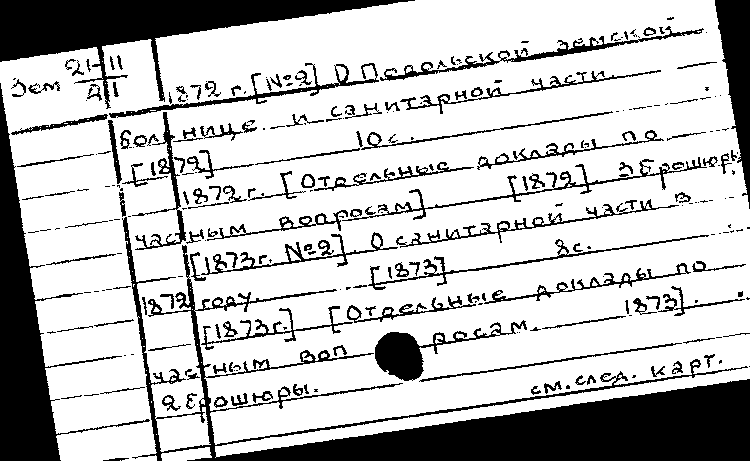 Зем 21-11
А I
1872 г. [№2] О Подольской земской
больнице и санитарной части.
[1872] 10 с.
1872 г. [Отдельные доклады по
частным вопросам]. [1872]. 3 брошюры.
[1873 г. №2]. О санитарной части в
1872 году. [1873]. 8 с.
[1873 г.] [Отдельные доклады по
частным воп росам. 1873].
2 брошюры.
см. след. карт.